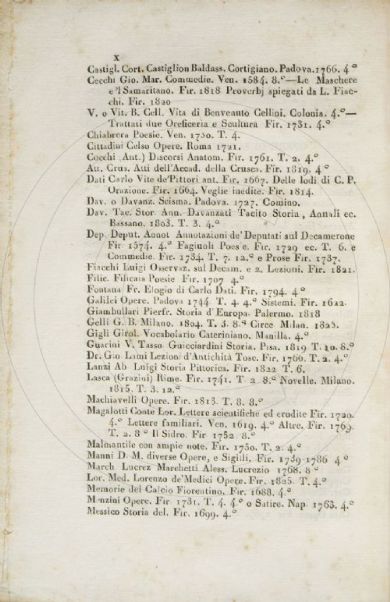 X
Castigl. Cort. Castiglion Baldass. Cortigiano. Padova. 1766. 4°
Cecchi Gio. Mar. Commedie. Ven. 1584. 8.°—Le Maschere
e 'l Samaritano. Fir. 1818 Proverbj spiegati da L. Fiac-
chi. Fir. 1820
V. o Vit. B. Cell. Vita di Benvenuto Cellini. Colonia. 4.°—
Trattati due Oreficeria e Scultura Fir. 1731. 4.°
Chiabrera Poesie. Ven. 1730. T. 4.
Cittadini Celso Opere. Roma 1721.
Cocchi Ant.) Discorsi Anatom. Fir. 1761. T. 2. 4.°
Att. Crus. Atti dell'Accad. della Crusca. Fir. 1819. 4°
Dati Carlo Vite de'Pittori ant. Fir. 1667. Delle lodi di C. P.
Orazione. Fir. 1664. Veglie inedite. Fir. 1814.
Dav. o Davanz. Scisma. Padova. 1727. Comino.
Dav. Tac. Stor. Ann. Davanzati Tacito Storia, Annali ec.
Bassano. 1803. T. 3. 4.°
Dep. Deput. Annot Annotazioni de'Deputati sul Decamerone
Fir 1574. 4.° Fagiuoli Poesie. Fir. 1729 ec. T. 6. e
Commedie Fir. 1734. T. 7. 12.° e Prose Fir. 1737.
Fiacchi Luigi Osservaz. sul Decam. e 2. Lezioni. Fir. 1821.
Filic. Filicaia Poesie Fir. 1707 4.°
Fontana Fr. Elogio di Carlo Dati. Fir. 1794. 4°
Galilei Opere. Padova 1744 T. 4. 4.° Sistemi. Fir. 1622.
Giambullari Pierfr. Storia d'Europa. Palermo. 1818
Gelli G. B. Milano. 1804. T. 3. 8.° Circe Milan. 1825.
Gigli Girol. Vocabolario Cateriniano. Manilla. 4.°
Guarini V. Tasso Guicciardini Storia. Pisa. 1819 T. 10. 8.°
Dr. Gio Lami Lezioni d'Antichità Tosc. Fir. 1766. T. 2. 4.°
Lanzi Ab Luigi Storia Pittorica. Fir. 1822 T. 6.
Lasca (Grazini) Rime. Fir. 1741. T 2 8.° Novelle. Milano.
1815. T. 3. 12.°
Machiavelli Opere. Fir. 1813. T. 8. 8.°
Magalotti Conte Lor. Lettere scientifiche ed erudite Fir. 1720.
4.° Lettere familiari. Ven. 1619. 4.° Altre. Fir. 1769.
T. 2. 8° Il Sidro. Fir. 1752. 8.°
Malmantile con ampie note. Fir. 1750. T. 2. 4.°
Manni D. M. diverse Opere, e Sigilli. Fir. 1739-1786 4°
March Lucrez Marchetti Aless. Lucrezio 1768. 8°
Lor. Med. Lorenzo de'Medici Opere. Fir. 1825. T. 4.
Memorie del Calcio Fiorentino. Fir. 1688. 4.°
Menzini Opere. Fir 1731. T. 4. 4.° o Satire. Nap. 1763. 4.°
Messico Storia del. Fir. 1699. 4.°